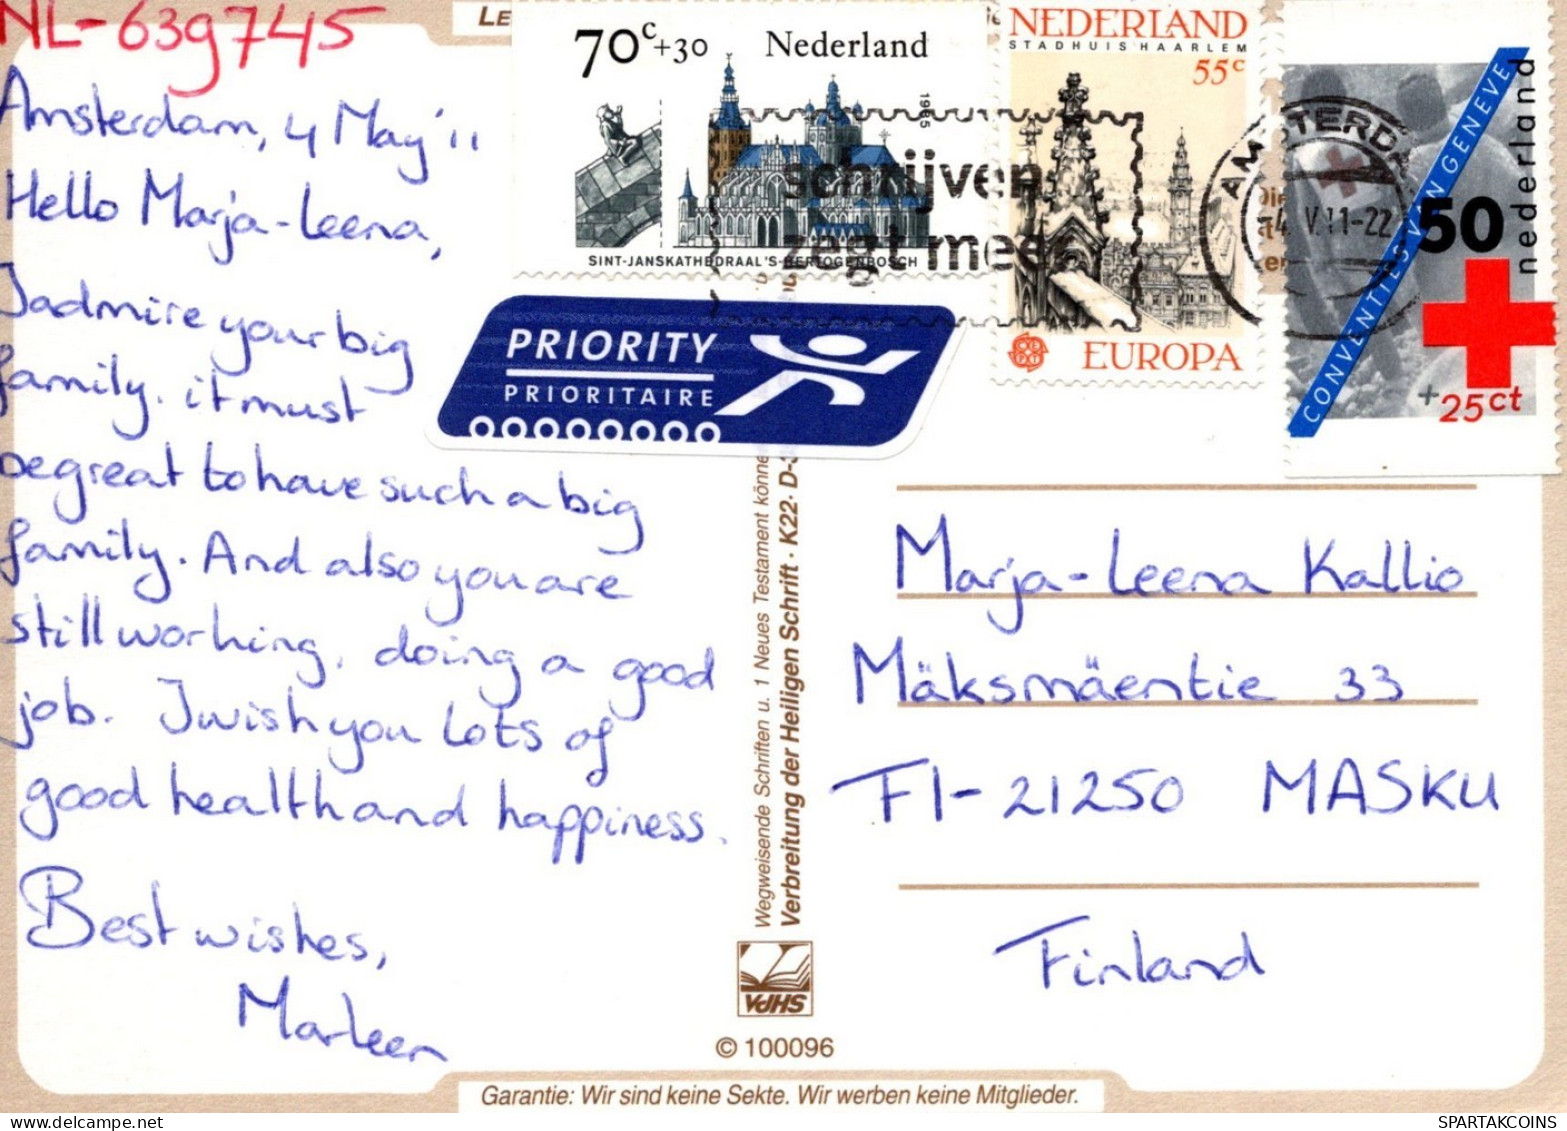 NL-639745
Amsterdam, 4 May '11
Hello Marja-Leena,
I admire your big
family. it must
be great to have such a big
family. And also you are
still working, doing a good
job. I wish you lots of
good health and happiness.
Best wishes,
Marleen
70c+30 Nederland
1985
SINT-JANSKATHEDRAAL 'S-HERTOGENBOSCH
NEDERLAND
STADHUIS HAARLEM
55c
EUROPA
CONVENTIES VAN GENEVE
nederland
50
+25ct
schrijven
zegt meer
AMSTERDA
-4.V.11-22
PRIORITY
PRIORITAIRE
Wegweisende Schriften u. 1 Neues Testament könne
Verbreitung der Heiligen Schrift · K22· D-3
Marja-Leena Kallio
Mäksmäentie 33
FI-21250 MASKU
Finland
VdHS
© 100096
Garantie: Wir sind keine Sekte. Wir werben keine Mitglieder.
SPARTAKCOINS